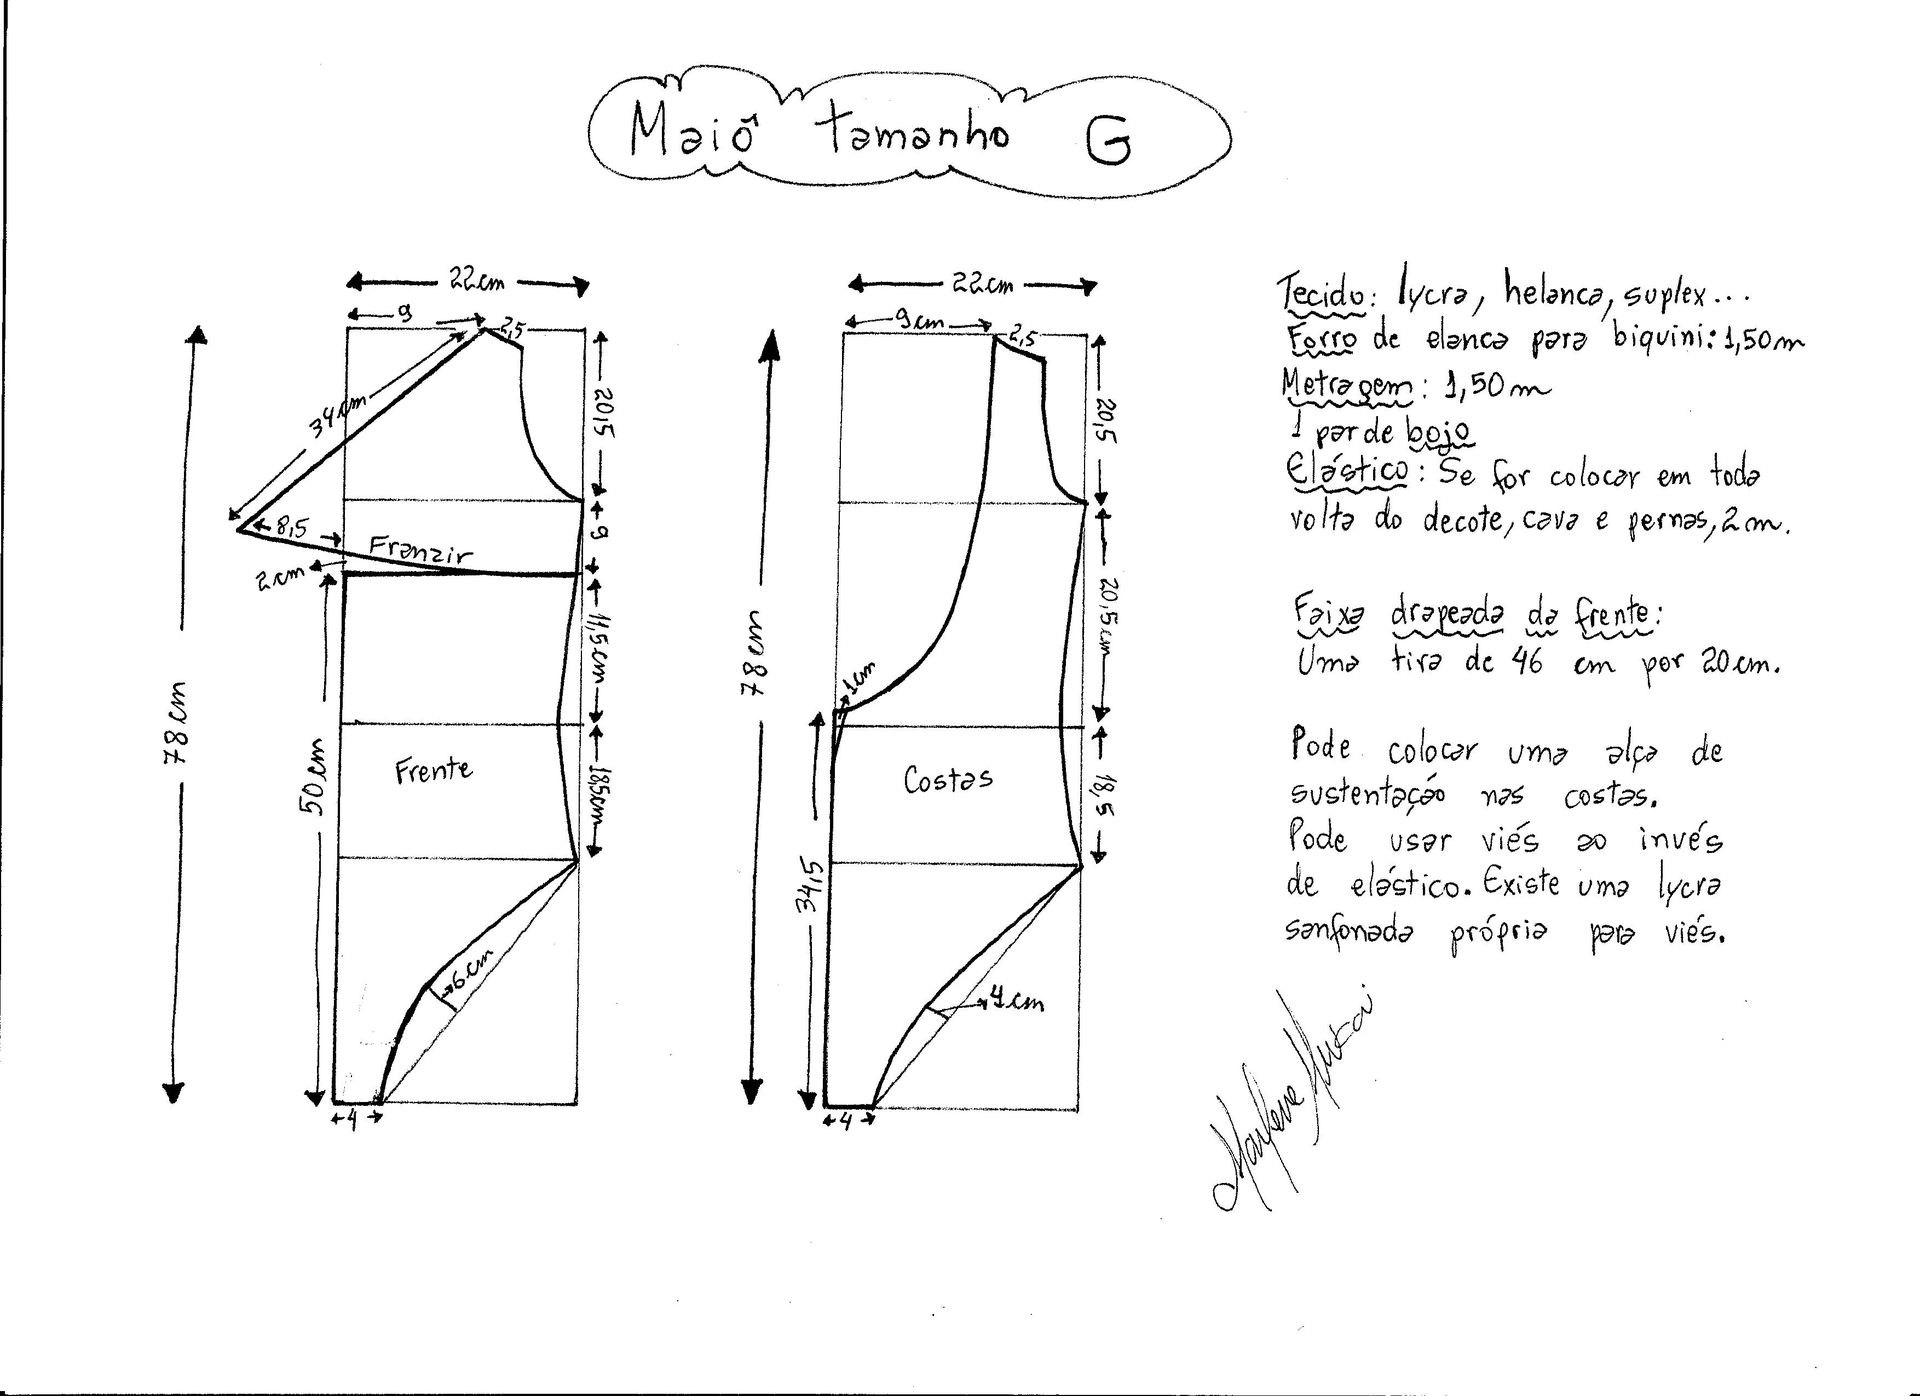 Maiô tamanho G
22cm
9
2,5
34cm
20,5
8,5
Franzir
9
2cm
11,5cm
78cm
50cm
Frente
18,5cm
6cm
4
22cm
9cm
2,5
20,5
20,5cm
1cm
78cm
Costas
18,5
34,5
4cm
4
Tecido: lycra, helanca, suplex...
Forro de elanca para biquini: 1,50m
Metragem: 1,50m
1 par de bojo
Elástico: Se for colocar em toda
volta do decote, cava e pernas, 2m.
Faixa drapeada da frente:
Uma tira de 46 cm por 20cm.
Pode colocar uma alça de
sustentação nas costas.
Pode usar viés ao invés
de elástico. Existe uma lycra
sanfonada própria para viés.
Marlene Mukai